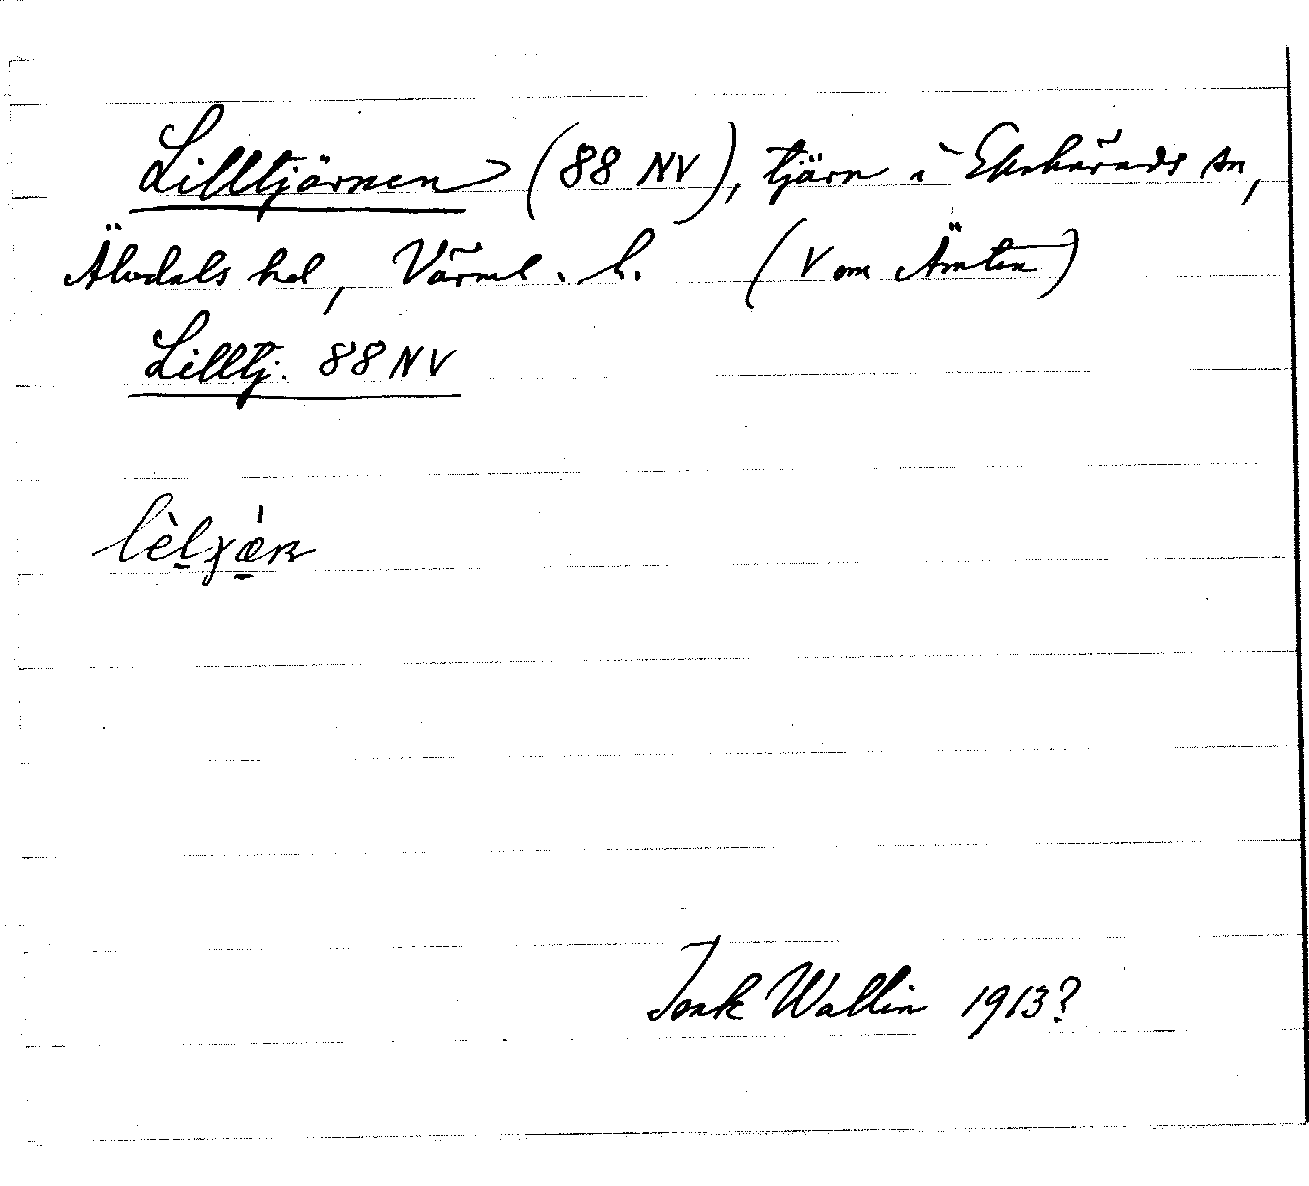 Lilltjärnen (88 NV), tjärn i Ekshärads sn,
Älvdals hd, Värml. l. (V om Ämten)
Lilltj. 88 NV
Isak Wallin 1913?